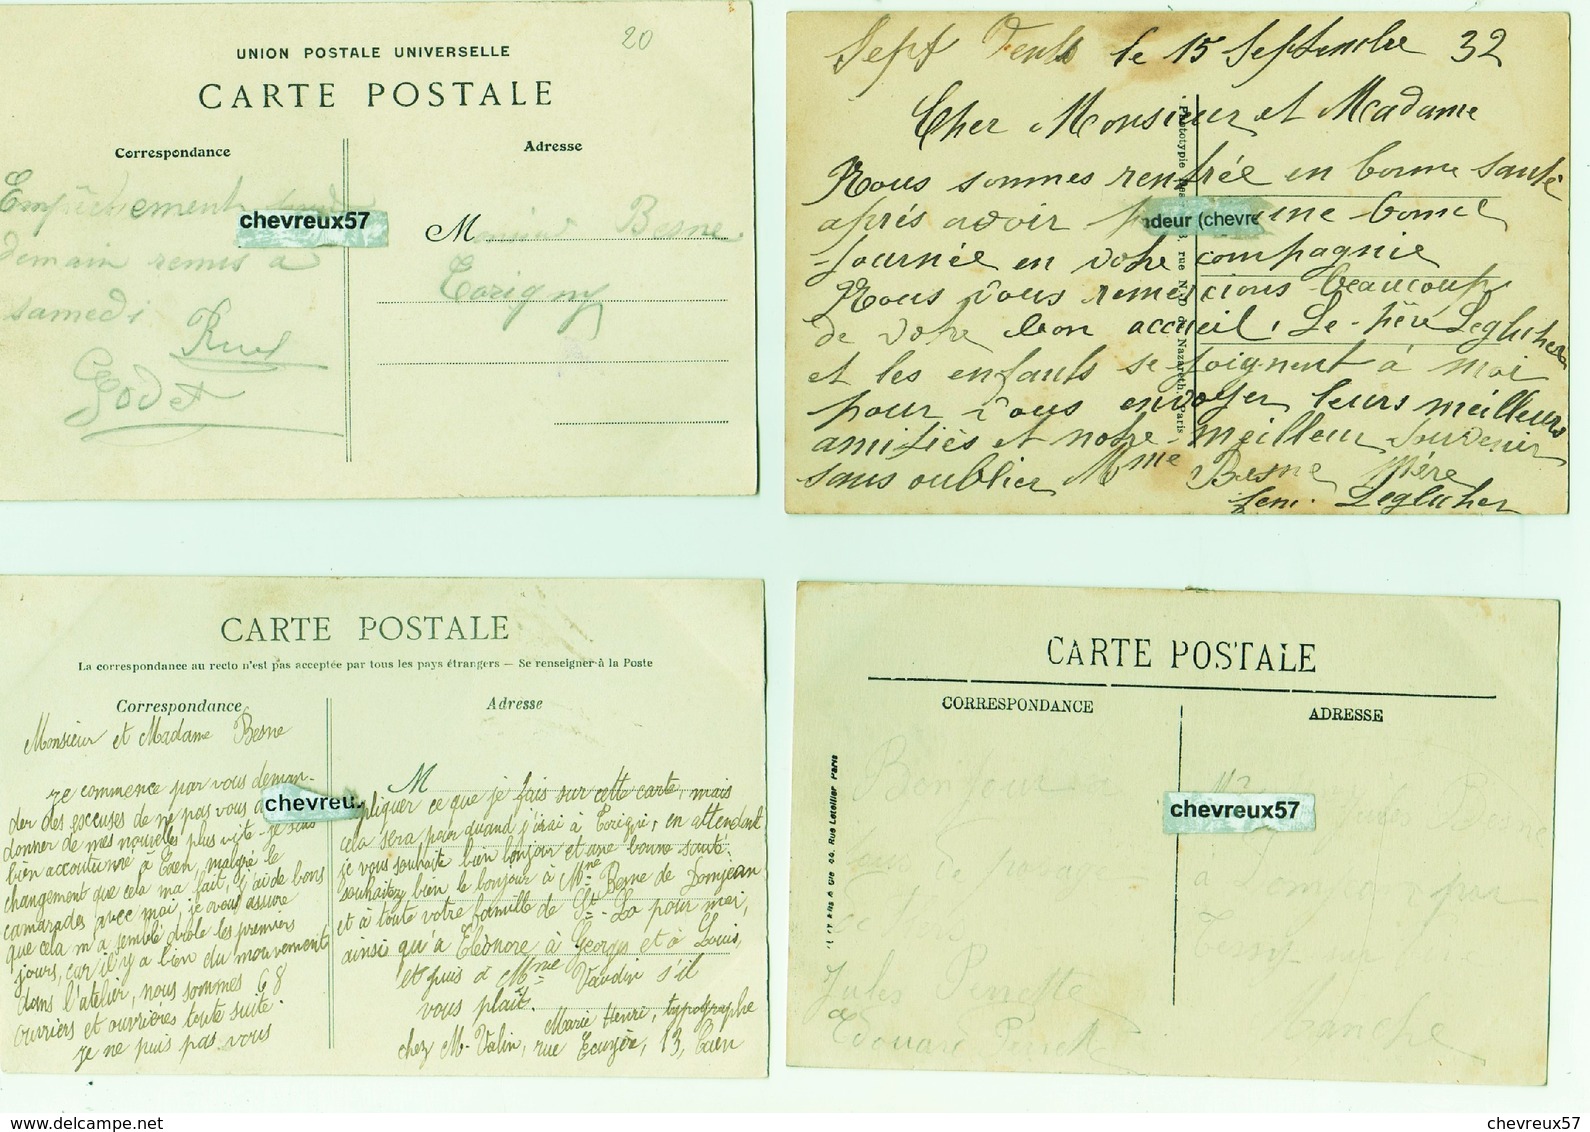 20
UNION POSTALE UNIVERSELLE
CARTE POSTALE
Correspondance
Adresse
Empêchement
demain remis à
samedi
Ruel
Godet
chevreux57
Monsieur Besne
Torigny
Sept Vents le 15 Septembre 32
Cher Monsieur et Madame
Nous sommes rentrée en bonne santé
aprés avoir une bonne
journée en votre compagnie
Nous vous remercions beaucoup
de votre bon accueil, Le père Leglucher
et les enfants se joignent à moi
pour vous envoyer leurs meilleurs
amitiés et notre meilleur souvenir
sans oublier Mme Besne Mère
fem. Leglucher
Phototypie
rue N.-D de Nazareth Paris
ndeur (chevre
CARTE POSTALE
La correspondance au recto n'est pas acceptée par tous les pays étrangers — Se renseigner à la Poste
Correspondance
Adresse
Monsieur et Madame Besne
Je commence par vous deman-
der des escuses de ne pas vous a
donner de mes nouvelles plus vite. je suis
bien accoutumé à Caen, malgré le
changement que cela ma fait, j'ai de bons
camarades avec moi, je vous assure
que cela m'a semblé drôle les premiers
jours, car il y a bien du mouvement
dans l'atelier, nous sommes 68
ouvriers et ouvrières toute suite.
Je ne puis pas vous
chevreu
M
pliquer ce que je fais sur cette carte, mais
cela sera pour quand j'irai à Torigni, en attendant
je vous souhaite bien bonjour et une bonne santé.
souhaitez bien le bonjour à Mme Besne de Domjean
et à toute votre famille de St-Lo pour moi,
ainsi qu'à Eléonore à Georges et à Louis,
et puis à Mme Vaudin s'il
vous plaît.
Marie Henri, typographe
chez M. Valin, rue Ecuyère, 13, Caen
CARTE POSTALE
CORRESPONDANCE
ADRESSE
Bonjour
de passage
Jules Perrette
à
Edouard Perrette
rue Letellier Paris
chevreux57
Besne
a Domjean par
Tessy sur Vire
Manche
chevreux57